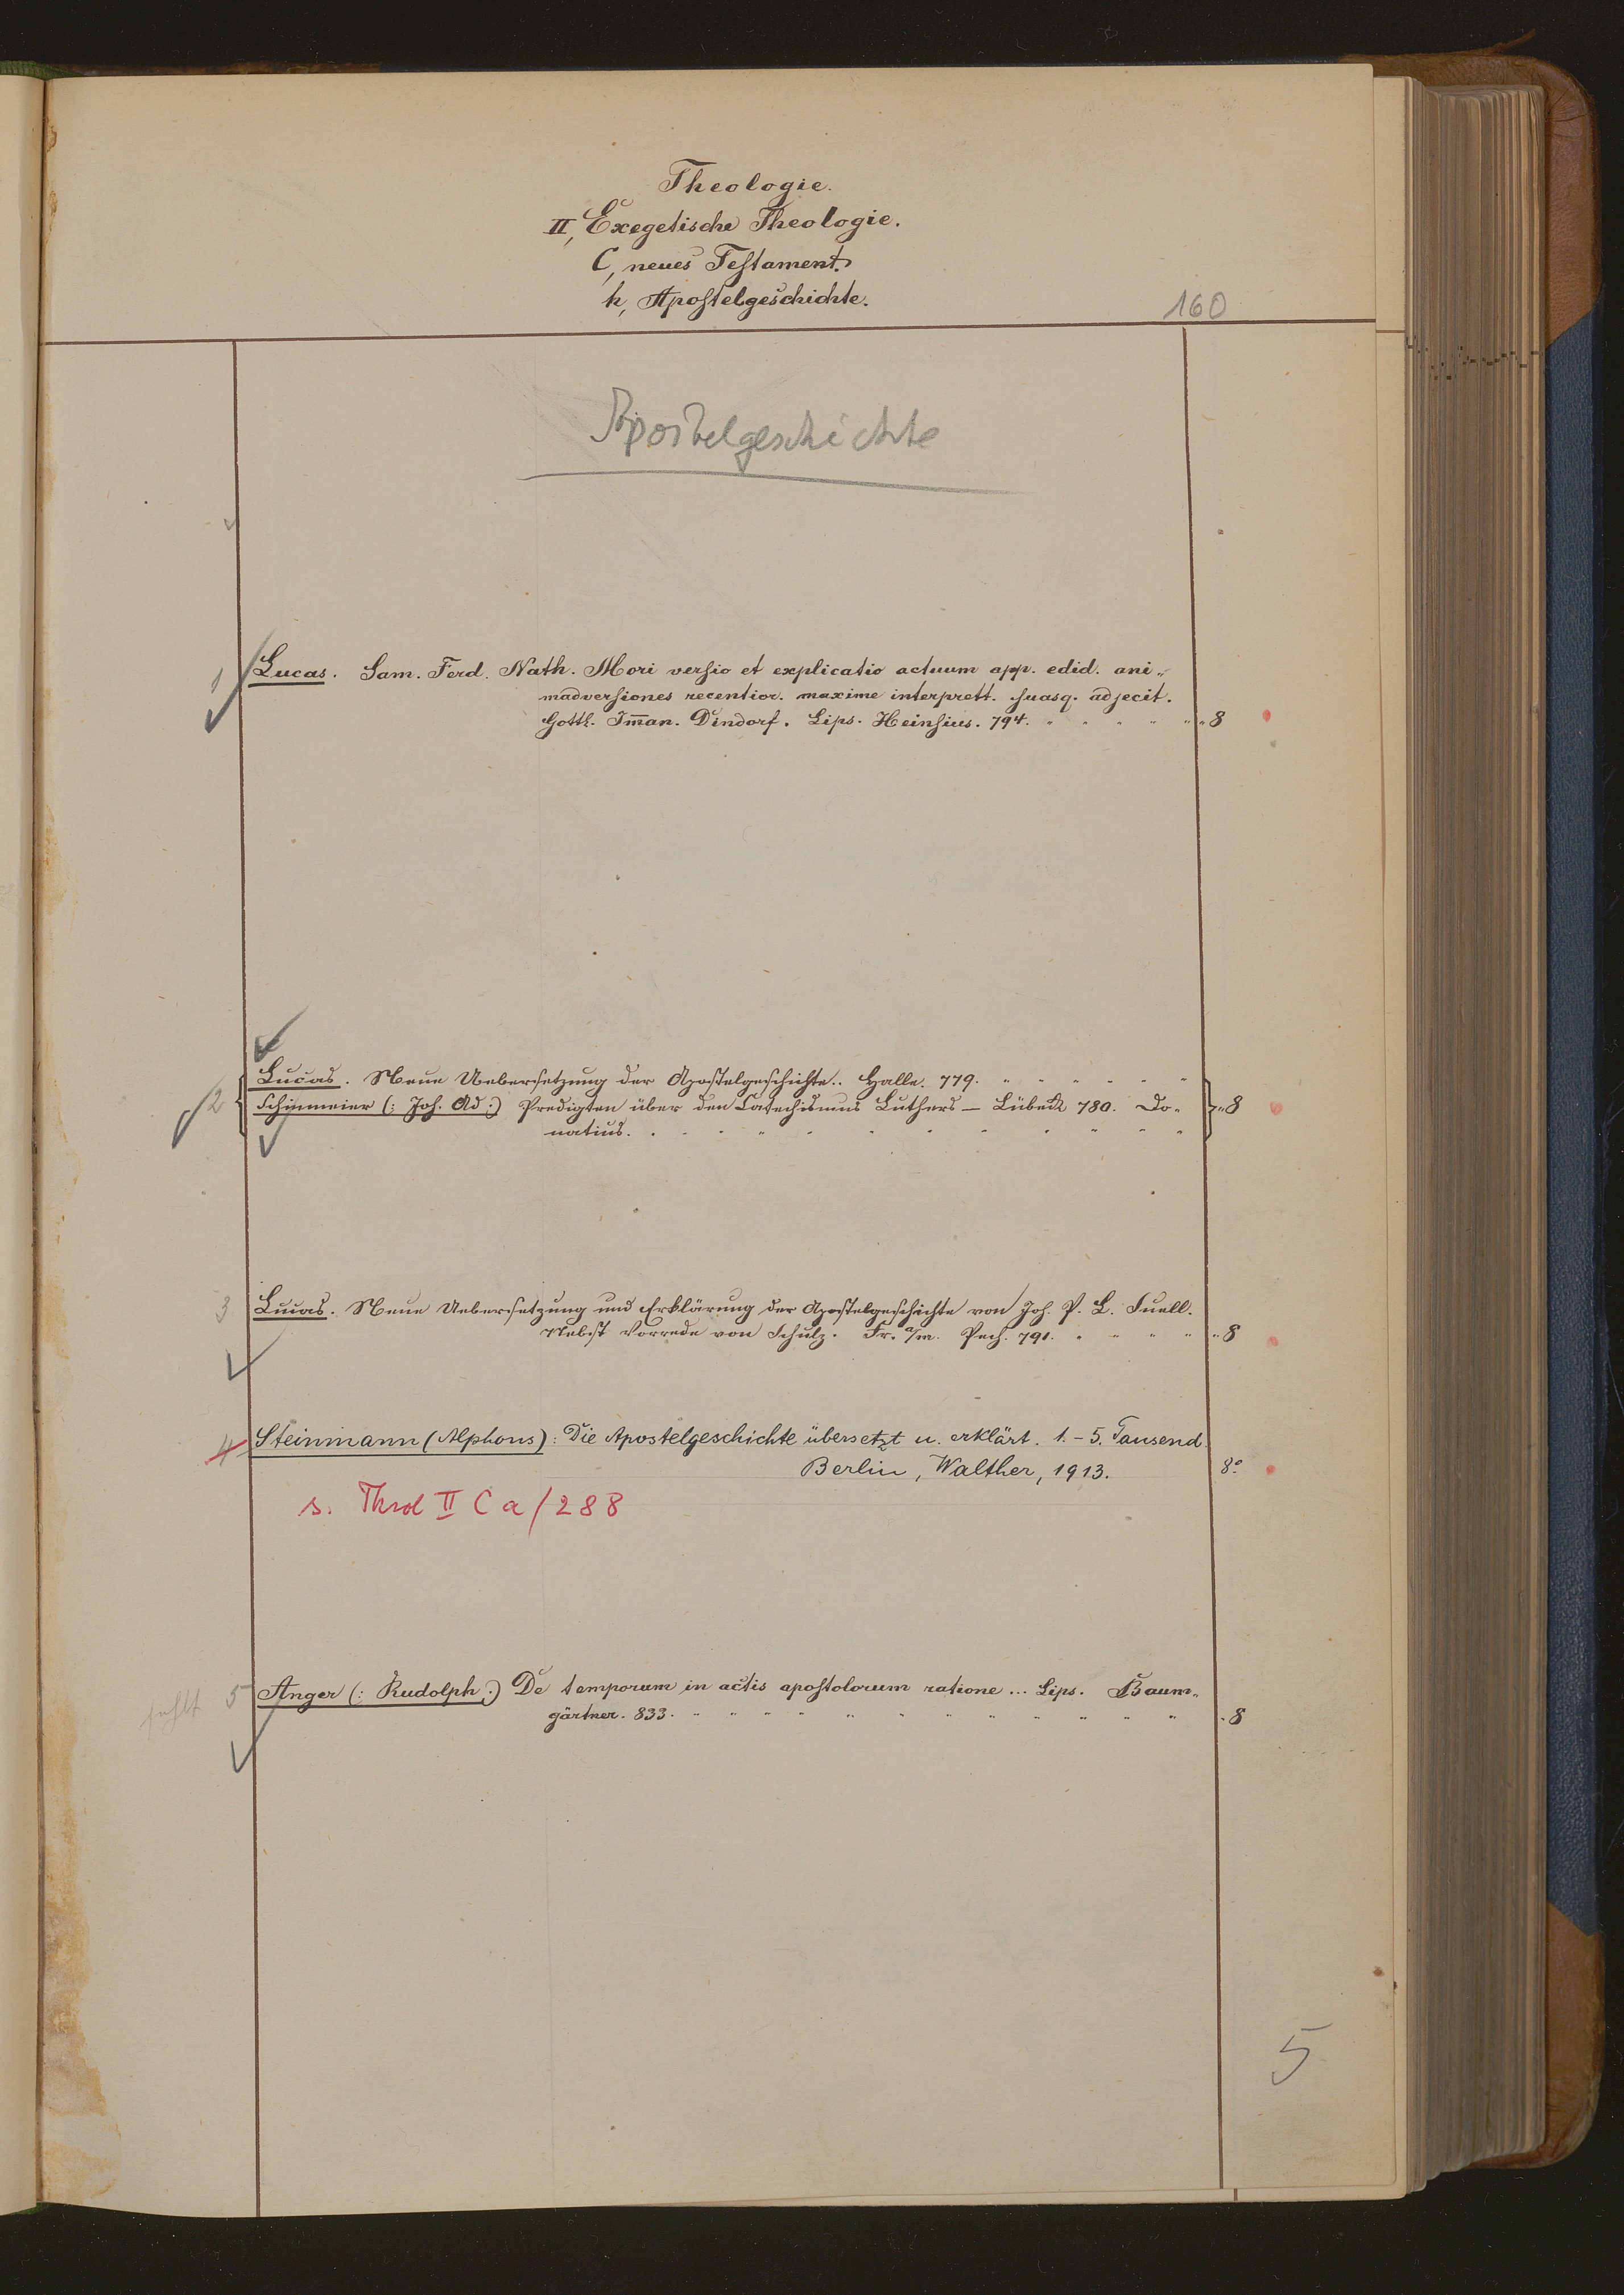 Theologie.
II, Exegetische Theologie.
C, neues Testament.
h, Apostelgeschichte.
160
Apostelgeschichte
1 Lucas. Sam. Ferd. Nath. Mori versio et explicatio actuum app. edid. ani„
madversiones recentior. maxime interprett. suasq. adjecit.
Gottl. Im̅an. Dindorf. Lips. Heinsius. 794. " " " " " " 8
2 Lucas. Neue Uebersetzung der Apostelgeschichte.. Halle. 779. " " " " " "
Schinmeier (: Joh. Ad :) Predigten über den Catechismus Luthers – Lübeck 780. Do„ " 8
natius. . . . " " " " " " " " "
3 Lucas. Neue Uebersetzung und Erklärung der Apostelgeschichte von Joh. P. L. Snell.
Nebst Vorrede von Schulz. Fr. a/m. Pech. 791. " " " " " 8
4 Steinmann (Alphons): Die Apostelgeschichte übersetzt u. erklärt. 1.–5. Tausend.
Berlin, Walther, 1913. 8°
s. Theol II C a/288
fehlt 5 Anger (: Rudolph :) De temporum in actis apostolorum ratione ... Lips. Baum„
gärtner. 833. " " " " " " " " " " " " " 8
5